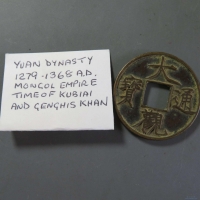 YUAN DYNASTY
1279-1368 A.D.
MONGOL EMPIRE
TIME OF KUBIAI
AND GENGHIS KHAN
大觀通寶